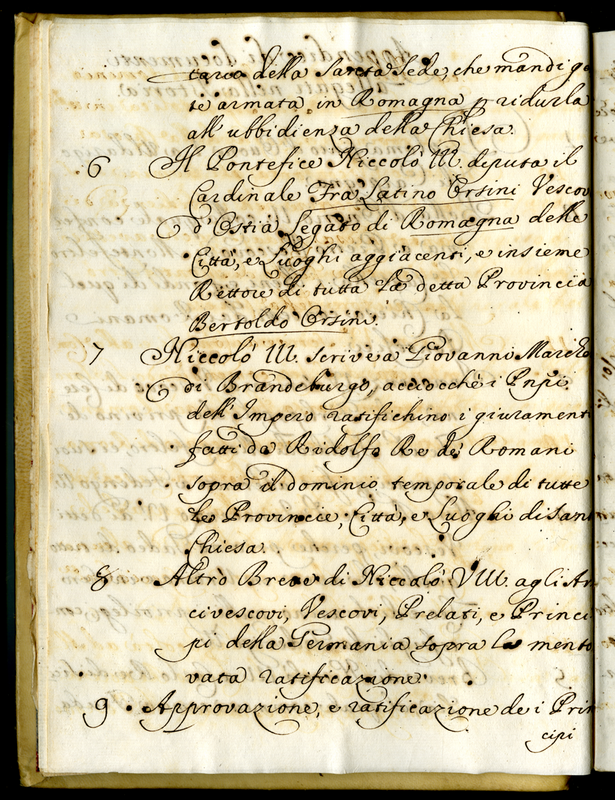 carico della Santa Sede, che mandi gen
te armata in Romagna p ridurla
all'ubbidienza della Chiesa.
6 Il Pontefice Niccolò III. deputa il
Cardinale Fra Latino Orsini Vescov
d'Ostia Legato di Romagna delle
Città, e Luoghi aggiacenti, e insieme
Rettore di tutta la detta Provincia
Bertoldo Orsini.
7 Niccolò III. scrive a Giovanni Marche
di Brandeburgo, acciocchè i Pnpi
dell'Impero ratifichino i giuramenti
fatti da Ridolfo Re de' Romani
sopra il dominio temporale di tutte
le Provincie, Città, e Luoghi di Sant
Chiesa.
8 Altro Breve di Niccolò VIII. agli Ar
civescovi, Vescovi, Prelati, e Princi
pi della Germania sopra la mento
vata ratificazione.
9 Approvazione, e ratificazione de i Prin
cipi